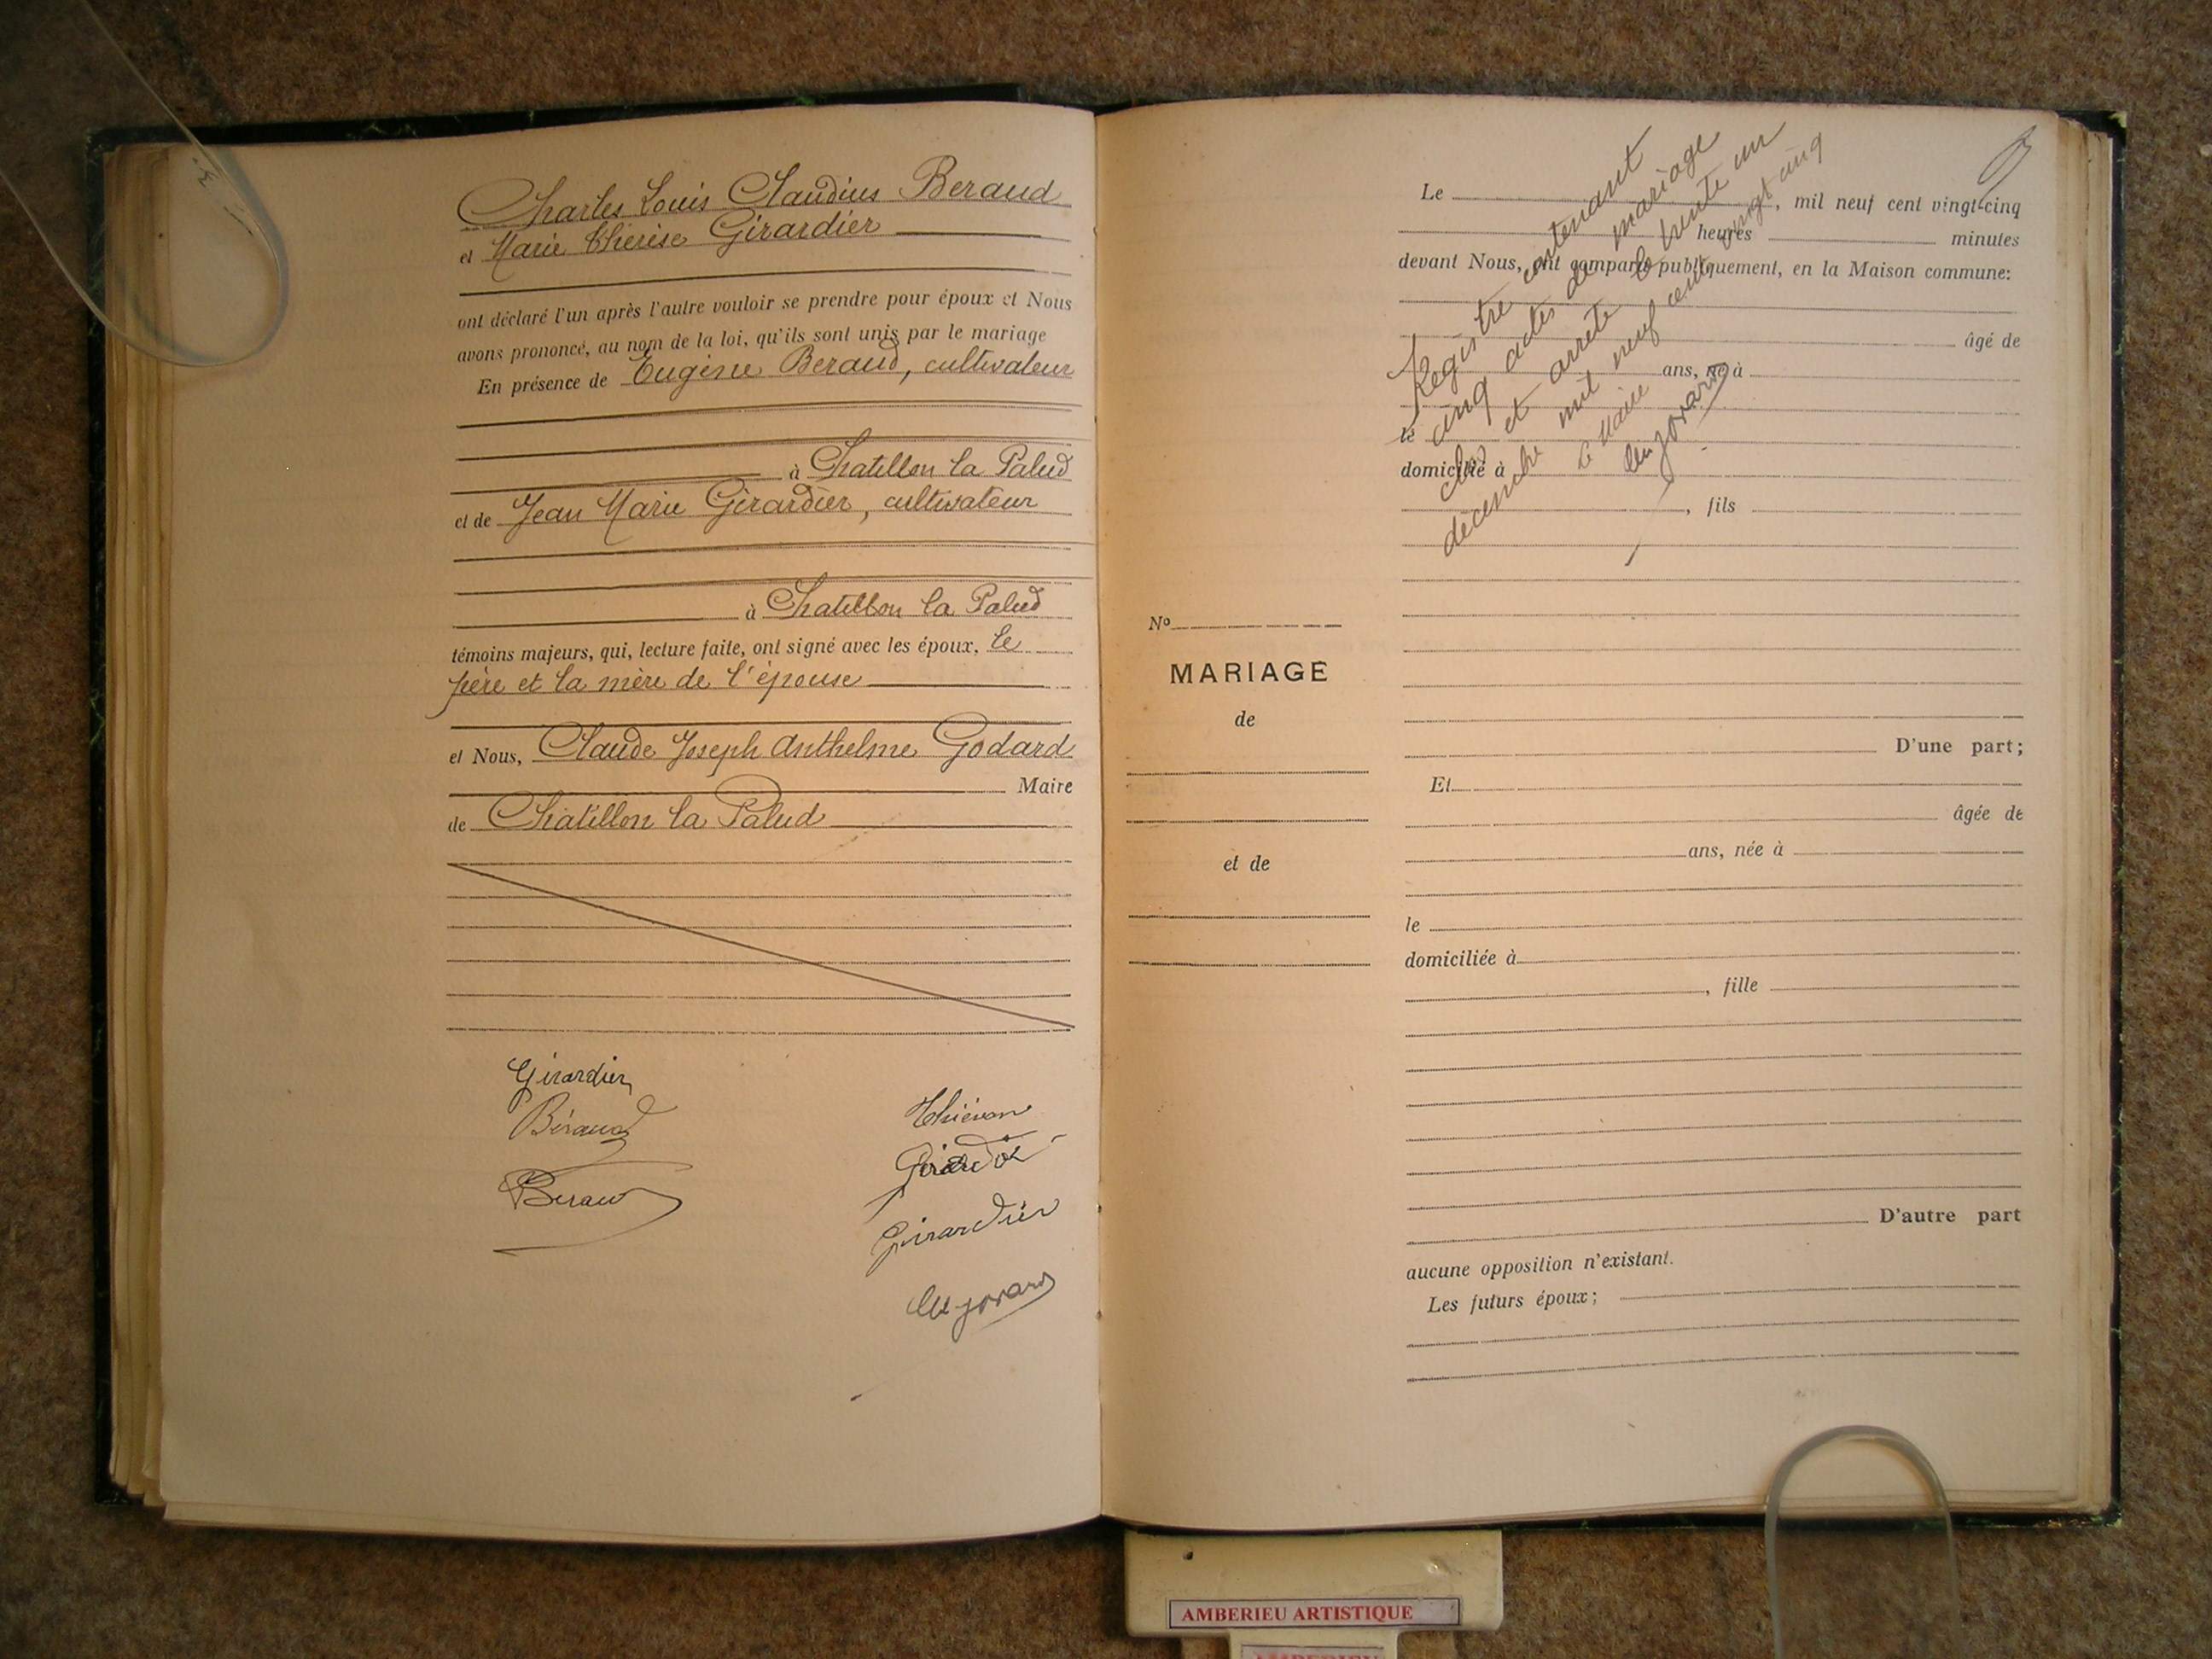 Charles Louis Claudius Beraud
et Marie Thérèse Girardier
ont déclaré l'un après l'autre vouloir se prendre pour époux et Nous
avons prononcé, au nom de la loi, qu'ils sont unis par le mariage
En présence de Eugène Beraud, cultivateur
à Chatillon la Palud
et de Jean Marie Girardier, cultivateur
à Chatillon la Palud
témoins majeurs, qui, lecture faite, ont signé avec les époux, le
père et la mère de l'épouse
et Nous, Claude Joseph Anthelme Godard
Maire
de Chatillon la Palud
Girardier
Béraud
Beraud
Girardier
Registre contenant
cinq actes de mariage
clos et arrêté le trente un
décembre mil neuf cent vingt cinq
Le Maire
Le , mil neuf cent vingt-cinq
heures minutes
devant Nous, ont comparu publiquement, en la Maison commune:
âgé de
ans, né à
le
domicilié à
, fils
No
MARIAGE
de
et de
D'une part;
Et
âgée de
ans, née à
le
domiciliée à
, fille
D'autre part
aucune opposition n'existant.
Les futurs époux;
AMBERIEU ARTISTIQUE
AMBERIEU